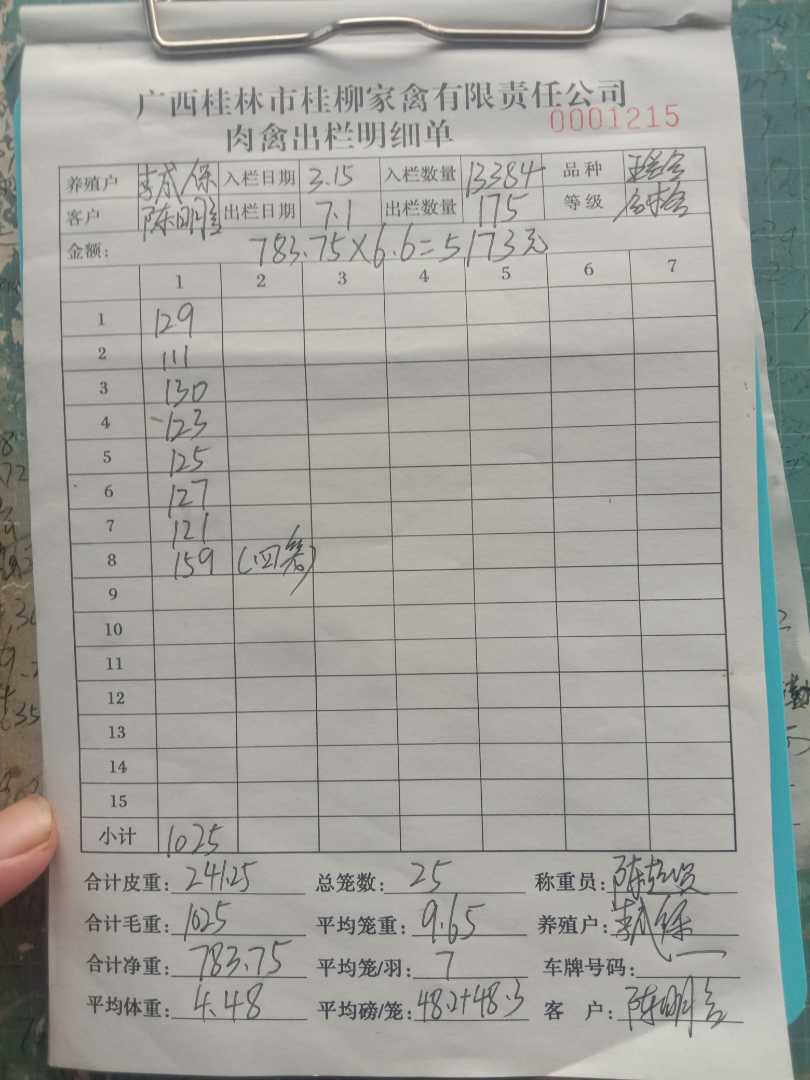 广西桂林市桂柳家禽有限责任公司
肉禽出栏明细单 0001215
养殖户 李成保 入栏日期 3.15 入栏数量 13384 品种
客户 陈明 出栏日期 7.1 出栏数量 175 等级
金额: 783.75×6.6=5173元
1 2 3 4 5 6 7
1 129
2 111
3 130
4 123
5 125
6 127
7 121
8 159 (四笼)
9
10
11
12
13
14
15
小计 1025
合计皮重: 241.25 总笼数: 25 称重员: 陈
合计毛重: 1025 平均笼重: 9.65 养殖户: 李成保
合计净重: 783.75 平均笼/羽: 7 车牌号码:
平均体重: 4.48 平均磅/笼: 48.2+48.3 客 户: 陈明